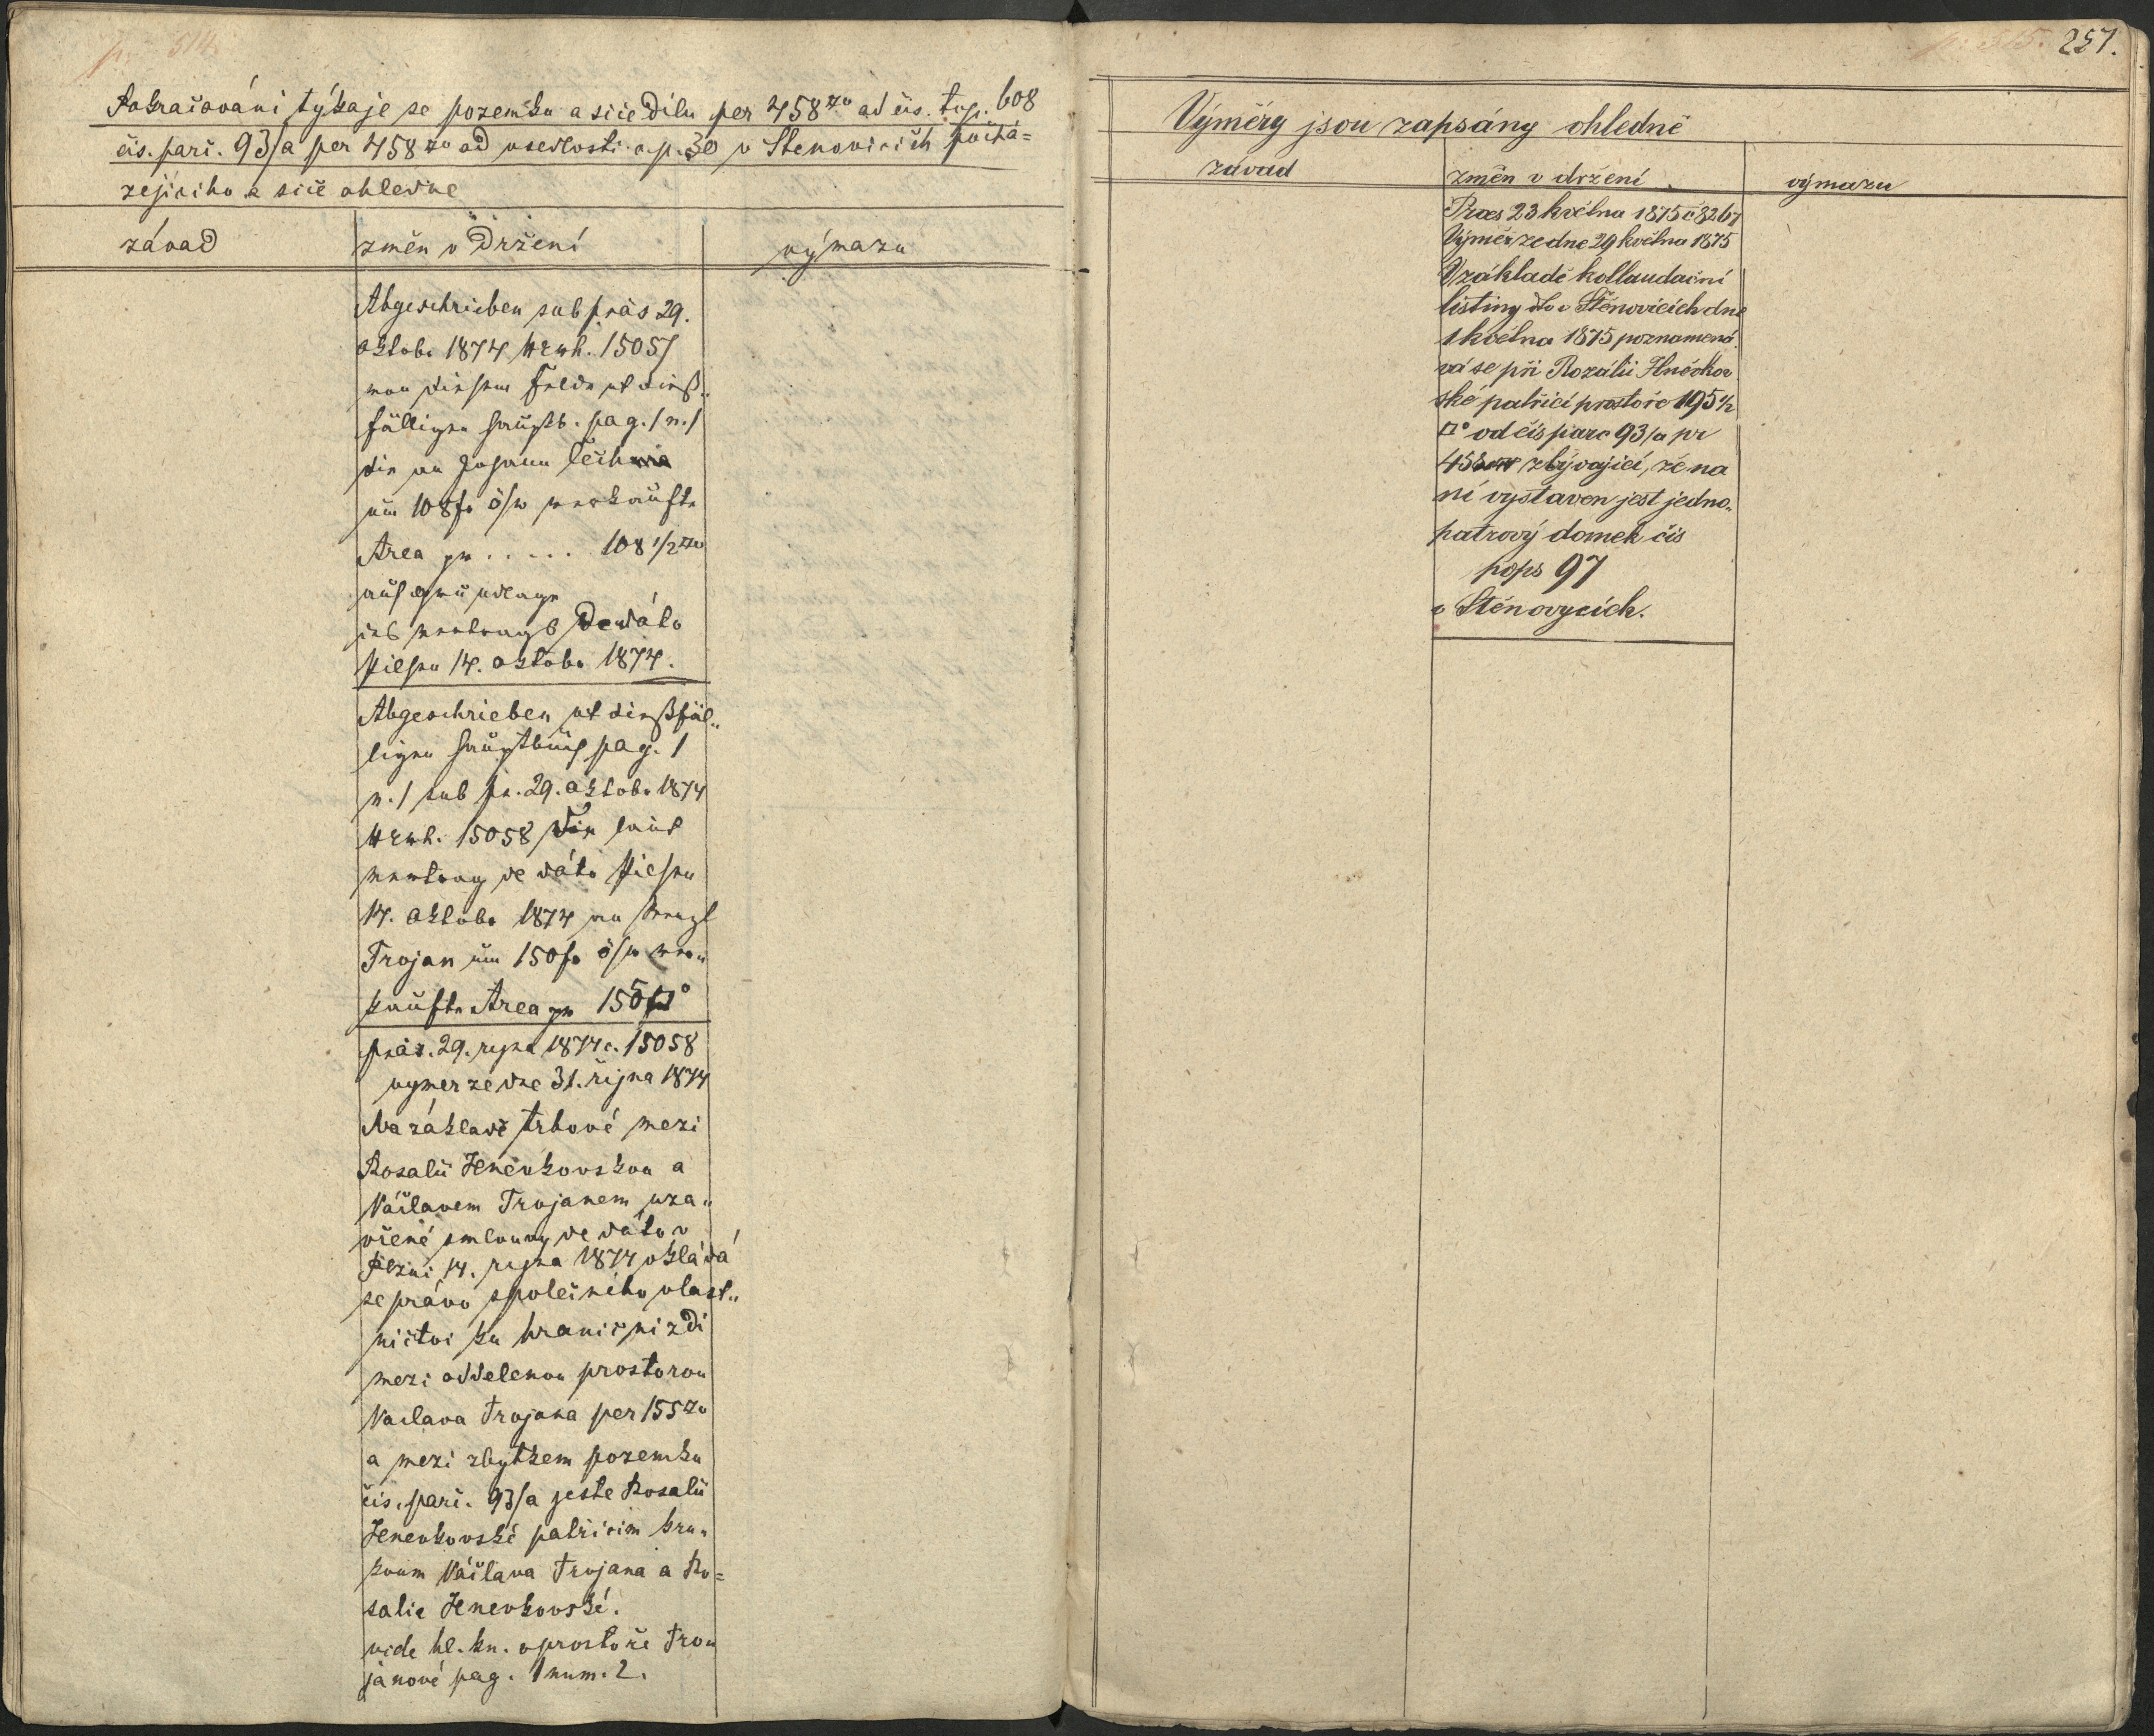 p. 514.
Pokračování týkaje se pozemku a siče dílu per 458□° ad čis. top. 608
čis. parč. 93/a per 458□° od usedlosti č. p. 30 v Štěnovicích pochá=
zejícího a siče ohledně
závad
změn v držení
výmazu
Abgeschrieben sub präs 29.
Oktobr 1874 NExh. 15057
von diesem Felde ut dieß„
fälligen Hauptb. pag. 1 n. 1
die an Johann Čech
um 108 fr ö/w verkaufte
Area pr ..... 108 1/2□°
auf Grundlage
des Vertrags de dáto
Pilsen 14. Oktobr 1874.
Abgeschrieben ut dießfäl„
ligen Hauptbuch pag. 1
n. 1 sub pr. 29. Oktobr 1874
NExh. 15058 Die laut
Vertrag de dáto Pilsen
14. Oktobr 1874 an Wenzl
Trojan um 150 fr ö/w ver„
kaufte Area pr 155□°
präs. 29. řijna 1874 č. 15058
vyměr ze dne 31. řijna 1874
Na základě trhové mezi
Rosalií Hněvkovskou a
Václavem Trojanem uza„
vřené smlouvy de dáto v
Plzni 14. řijna 1874 vkládá
se právo společního vlast„
nictví ku hraniční zdi
mezi oddělenou prostorou
Václava Trojana per 155□°
a mezi zbytkem pozemku
čis. parč. 93/a ještě Rosalii
Hněvkovské patřícím
Václava Trojana a Ro=
salie Hněvkovské.
vide hl. kn. o prostoře Tro„
janové pag. 1 num. 2.
p. 515. 257.
Výměry jsou zapsány ohledně
závad
změn v držení
výmazu
Praes 23 května 1875 č 8267
Výměr ze dne 29 května 1875
V základě kollaudační
listiny dto v Štěnovicích dne
1 května 1875 poznamená
vá se při Rozálii Hněvkov
ské patřící prostoře 195 1/2
□° od čís parc 93/a pr
458 zbývající, že na
ní vystaven jest jedno„
patrový domek čís
pops 97
v Štěnovycích.